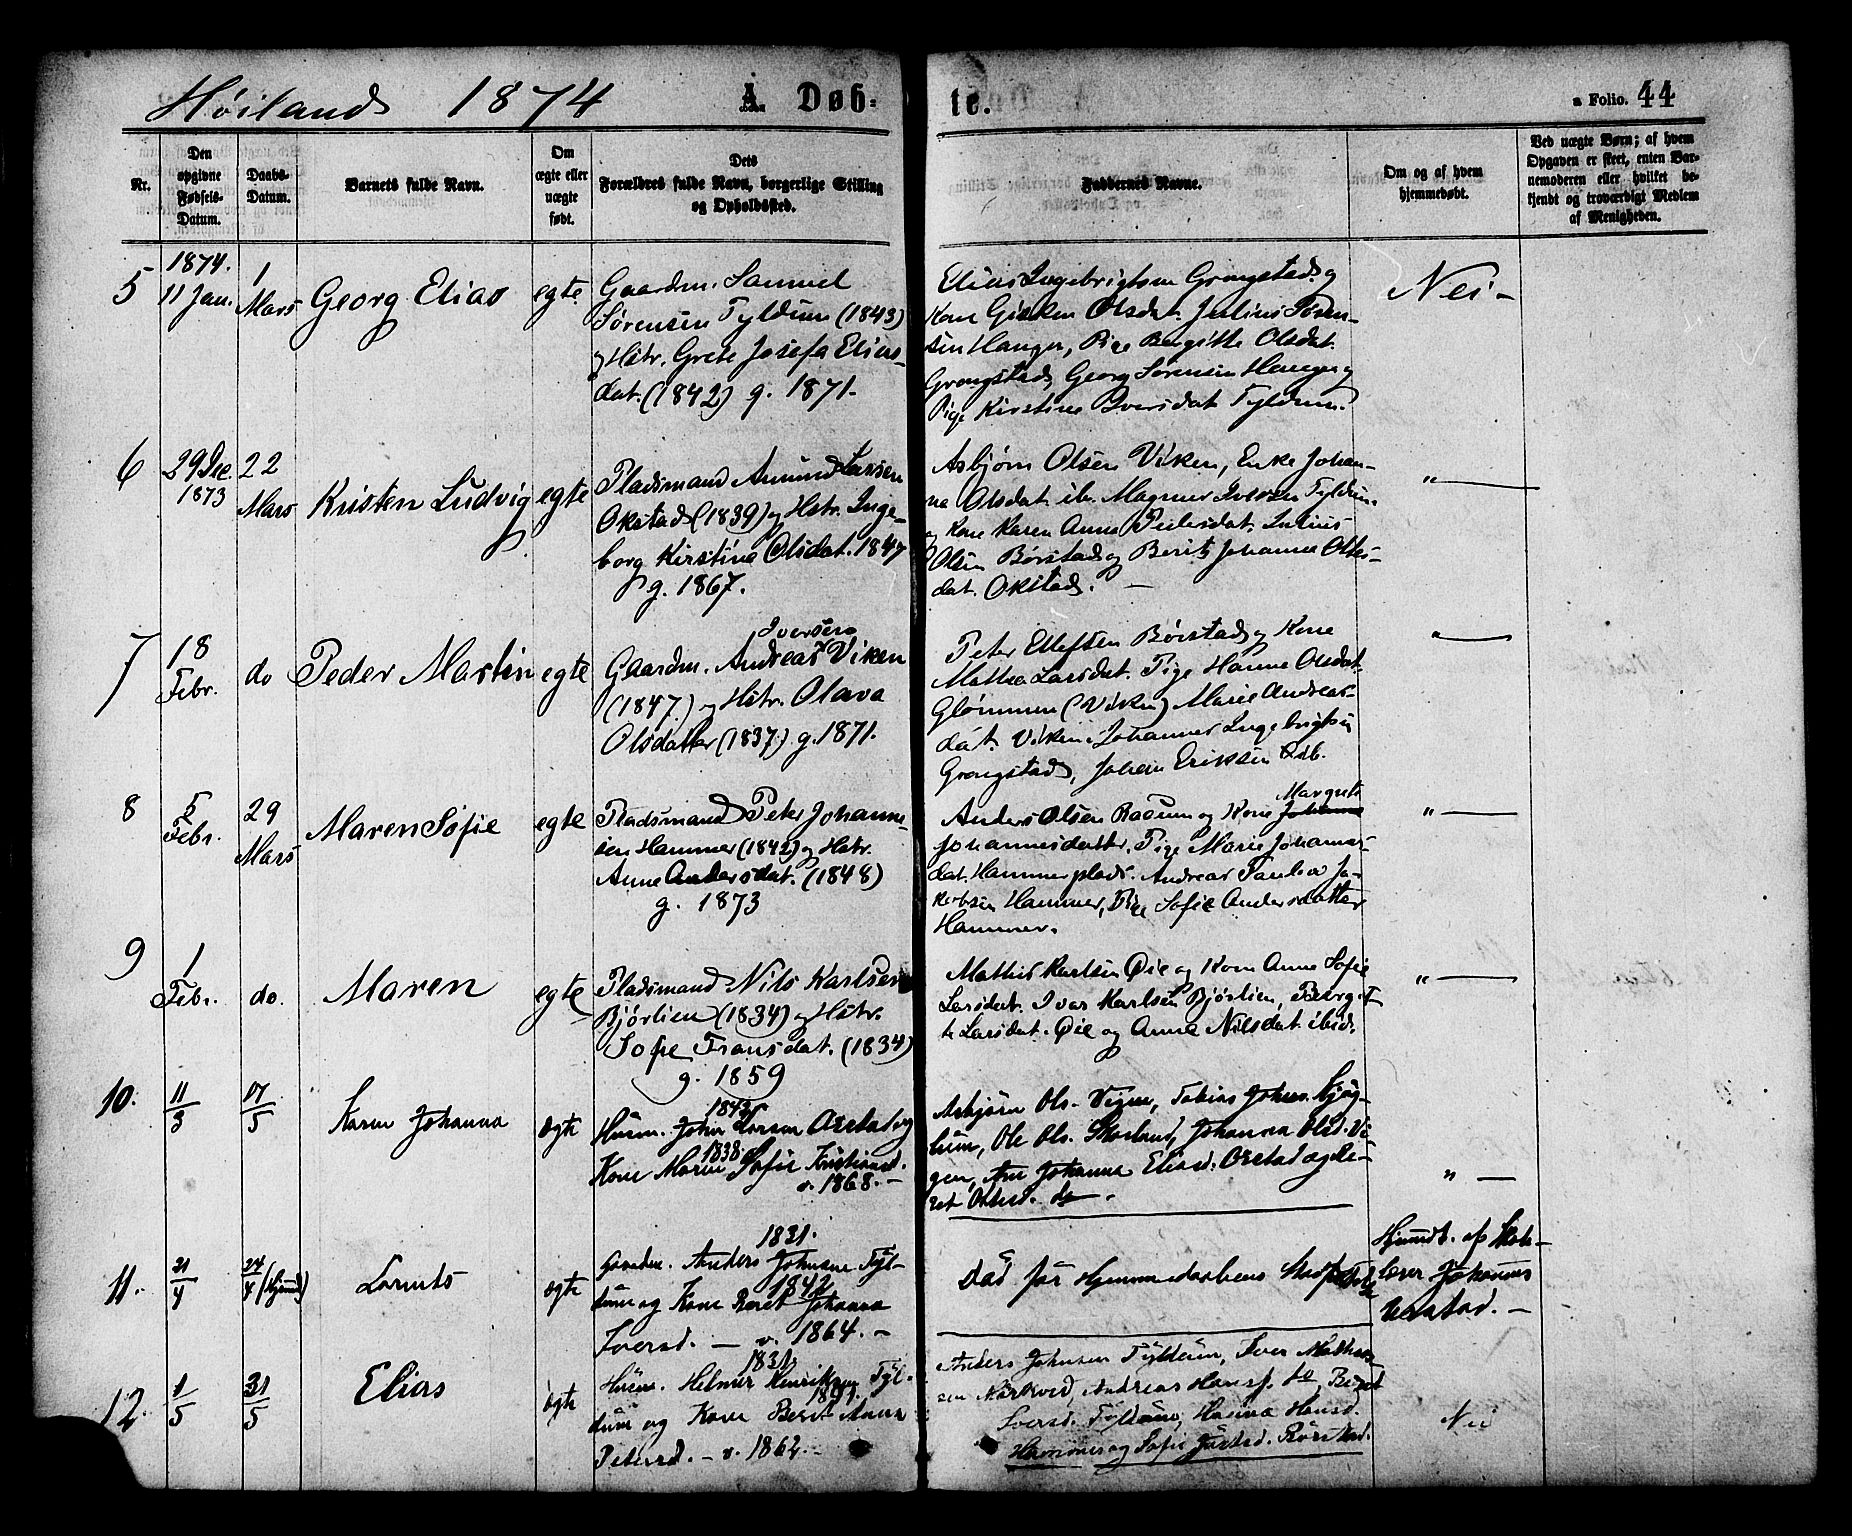 Høilands 1874 A Døb=
te. a Folio. 44
Nr.
Den opgivne Fødsels-Datum.
Daabs-Datum.
Barnets fulde Navn.
Om ægte eller uægte født.
Dets Forældres fulde Navn, borgerlige Stilling og Opholdssted.
Faddernes Navne.
Om og af hvem hjemmedøbt.
Ved uægte Børn; af hvem Opgaven er skeet, enten Barnemoderen eller hvilket bekjendt og troværdigt Medlem af Menigheden.
5
1874.
11 Jan.
1
Mars
Georg Elias
egte
Gaardm. Samuel
Sørensen Tyldum (1843)
og Hstr. Grete Josefa Elias-
dat. (1842) g. 1871.
Elias Ingebrigtsen Grongstad og
Kone Olsdat. Julius Søren-
sen Hanger, Pige Bergitte Olsdat.
Grongstad, Georg Sørensen Hanger og
Pige Kirstine Iversdat. Tyldum.
Nei –
6
29 Dec.
1873
22
Mars
Kristen Ludvig
egte
Pladsmand Amund Larsen
Okstad (1839) og Hstr. Inge-
borg Kirstine Olsdat. 1847
g. 1867.
Asbjørn Olsen Viken, Enke Johan-
na Olsdat. ib. Magnus Iversen Tyldum
og Kone Karen Anna Pedersdat. Julius
Olsen Børstad og Berit Johanna Ottes-
dat. Okstad. –
" —
7
18
Febr.
do
Peder Martin
egte
Iversen
Gaardm. Andreas Viken
(1847) og Hstr. Olava
Olsdatter (1837.) g. 1871.
Peter Ellefsen Børstad og Kone
Mathea Larsdat. Pige Hanna Olsdat.
Glømmen (Viken) Marie Andreas-
dat. Viken. Johannes Ingebrigtsen
Grongstad, Johan Eriksen
" —
8
5
Febr.
29
Mars
Maren Sofie
egte
Pladsmand Peter Johanne-
sen Hammer (1842) og Hstr.
Anne Andersdat. (1848)
g. 1873
Margrete
Anders Olsen Raaum og Kone Johanna
Johannesdatter. Pige Marie Johannes-
dat. Hammerplads. Andreas Paulus Ja-
kobsen Hammer, Pige Sofie Andersdatter
Hammer.
" —
9
1
Febr.
do.
Maren
egte
Pladsmand Nils Karlsen
Bjørlien (1834) og Hstr.
Sofie Fransdat. (1834)
g. 1859
Mathis Karlsen Øie og Kone Anne Sofie
Larsdat. Ivar Karlsen Bjørlien, Bergit-
te Larsdat. Øie og Anna Nilsdat. ibid.
" —
10.
11
3
17
5
Karen Johanna
ægte
1843
Husm. John Larsen Øxstad og
1838
Kone Maren Sofie Kristians d.
v. 1868. –
Asbjørn Ols. Vigen, Tobias Johns.
Ole Ols. Johanna Olsd. Vi-
gen, Ane Johanna Eliasd. Øxstad og Be-
ret Ottesd. do.
" —
11.
21
4
24
4 (Hjemd.)
Lornts
ægte
1831.
Gaardm. Anders Johnsen Tyl-
1842
dum og Kone Beret Johanna
Iversd. – v. 1864. –
Død før Hjemmedaabens
Hjemdt. af Sko-
lelærer Johannes
–
12.
1
5
31
5
Elias
ægte
1831
Husm. Helmer Henriksen Tyl-
dum og Kone Berit Anna
Petersd. – v. 1862. –
Anders Johnsen Tyldum, Iver Mathias-
sen Andreas Hansp. do, Beret
Iversd. Tyldum, Hanna Hansd.
Hammer og Sofie Børstad.
Nei